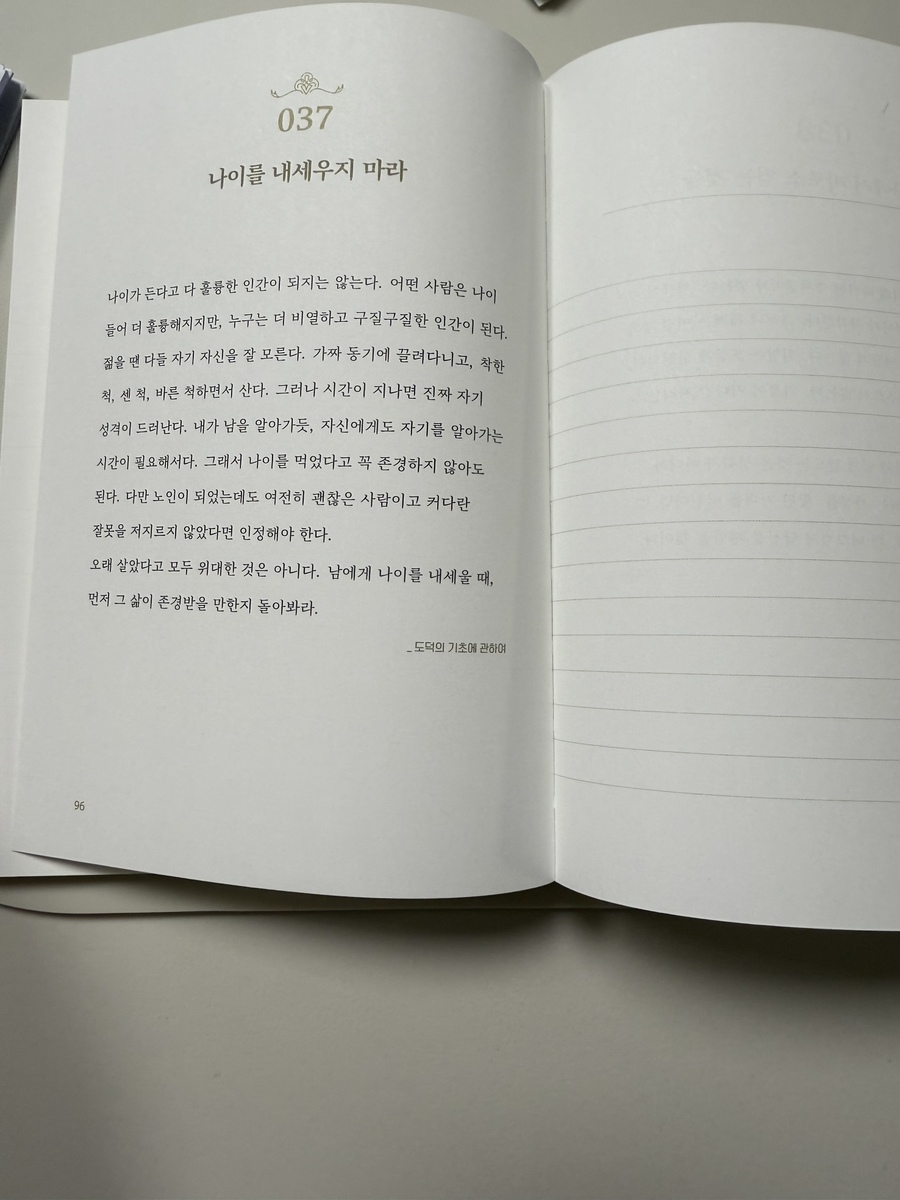 037
나이를 내세우지 마라
나이가 든다고 다 훌륭한 인간이 되지는 않는다. 어떤 사람은 나이
들어 더 훌륭해지지만, 누구는 더 비열하고 구질구질한 인간이 된다.
젊을 땐 다들 자기 자신을 잘 모른다. 가짜 동기에 끌려다니고, 착한
척, 센 척, 바른 척하면서 산다. 그러나 시간이 지나면 진짜 자기
성격이 드러난다. 내가 남을 알아가듯, 자신에게도 자기를 알아가는
시간이 필요해서다. 그래서 나이를 먹었다고 꼭 존경하지 않아도
된다. 다만 노인이 되었는데도 여전히 괜찮은 사람이고 커다란
잘못을 저지르지 않았다면 인정해야 한다.
오래 살았다고 모두 위대한 것은 아니다. 남에게 나이를 내세울 때,
먼저 그 삶이 존경받을 만한지 돌아봐라.
_ 도덕의 기초에 관하여
96